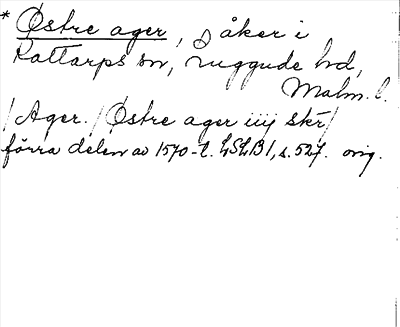 * Østre ager, åker i
Kattarps sn, Luggude hd,
Malm. l.
/Ager./Østre ager iiij skr/
förra delen av 1570-t. LSLB I, s. 527. orig.